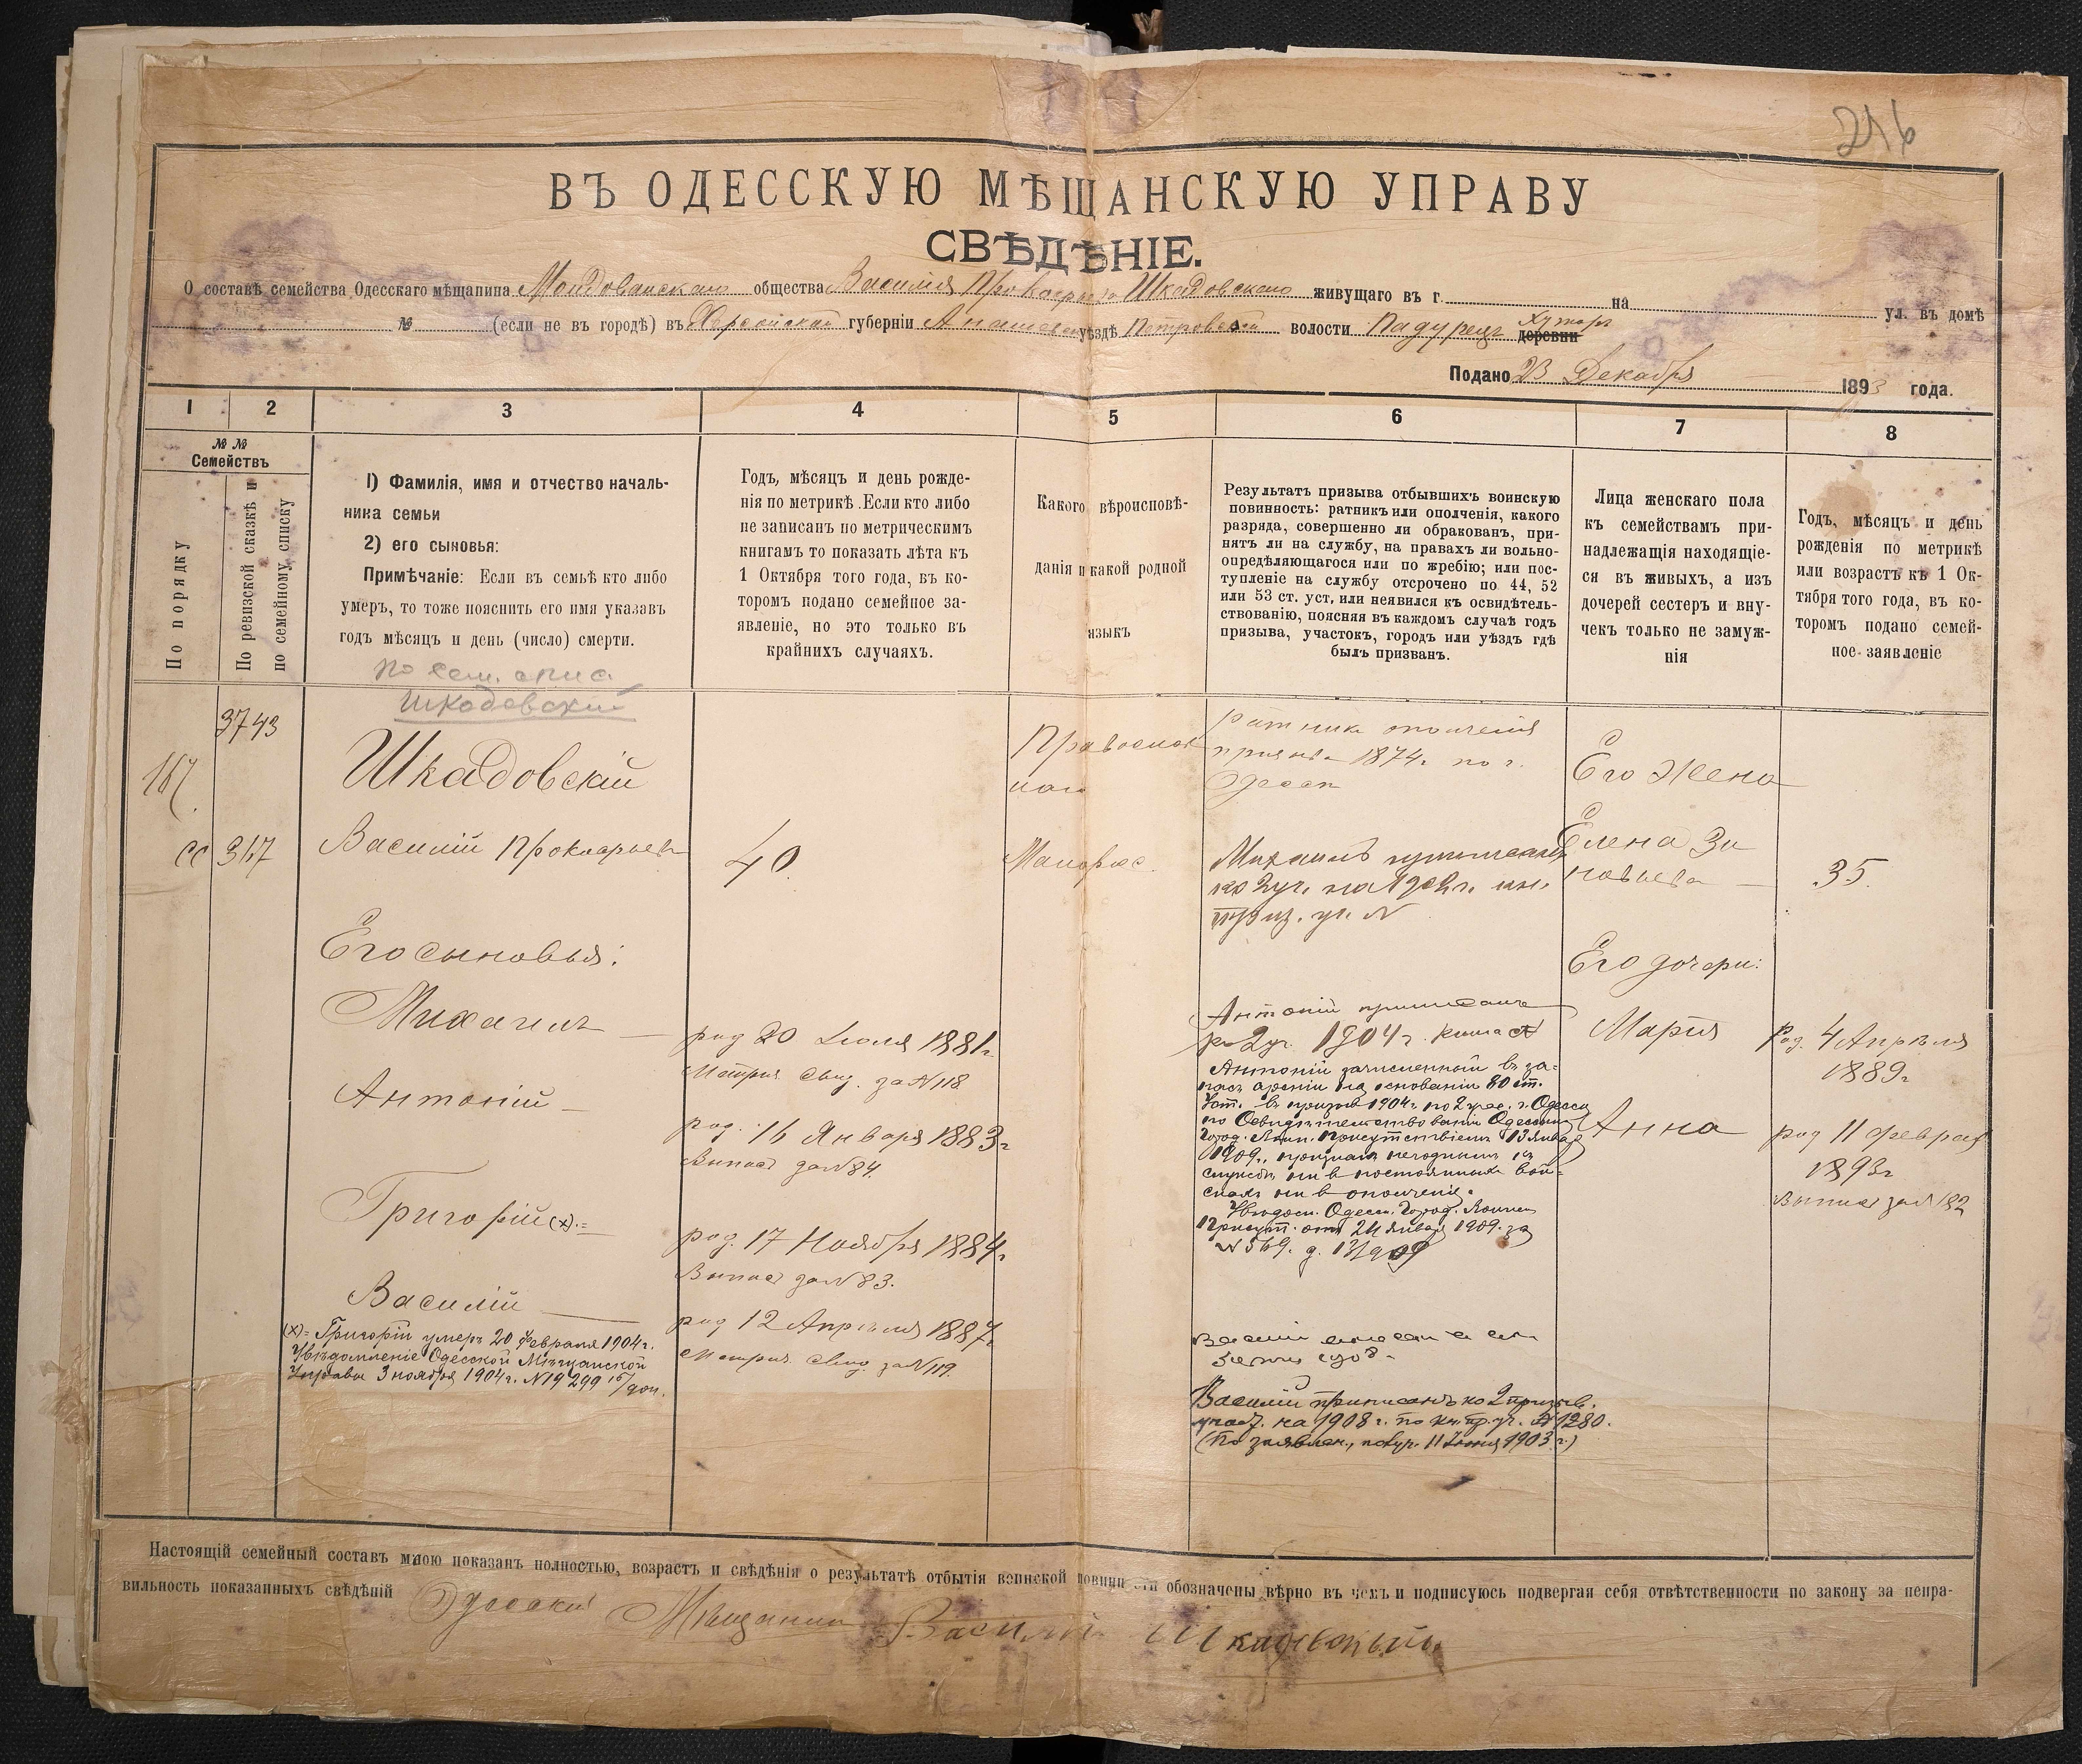 216
ВЪ ОДЕССКУЮ МѢЩАНСКУЮ УПРАВУ
СВѢДѢНІЕ.
О составѣ семейства Одесскаго мѣщанина Молдованскаго общества Василія Прокофьева Шкадовскаго живущаго въ г. на ул. въ домѣ
№ (если не въ городѣ) въ Херсонской губерніи Ананьевск уѣздѣ Петровской волости Падурецъ деревни Хуторъ
Подано 23 Декабря 1893 года.
1 2 3 4 5 6 7 8
№№
Семействъ
По порядку
По ревизской сказкѣ и
по семейному списку
1) Фамилія, имя и отчество началь-
ника семьи
2) его сыновья:
Примѣчаніе: Если въ семьѣ кто либо
умеръ, то тоже пояснить его имя указавъ
годъ мѣсяцъ и день (число) смерти.
Годъ, мѣсяцъ и день рожде-
нія по метрикѣ. Если кто либо
не записанъ по метрическимъ
книгамъ то показать лѣта къ
1 Октября того года, въ ко-
торомъ подано семейное за-
явленіе, но это только въ
крайнихъ случаяхъ.
Какого вѣроисповѣ-
данія и какой родной
языкъ
Результатъ призыва отбывшихъ воинскую
повинность: ратникъ или ополченія, какого
разряда, совершенно ли обракованъ, при-
нятъ ли на службу, на правахъ ли вольно-
опредѣляющагося или по жребію; или пос-
тупленіе на службу отсрочено по 44, 52
или 53 ст. уст, или неявился къ освидѣтель-
ствованію, поясняя въ каждомъ случаѣ годъ
призыва, участокъ, городъ или уѣздъ гдѣ
былъ призванъ.
Лица женскаго пола
къ семействамъ при-
надлежащія находящіе-
ся въ живыхъ, а изъ
дочерей сестеръ и вну-
чекъ только не замуж-
нія
Годъ, мѣсяцъ и день
рожденія по метрикѣ
или возрастъ къ 1 Ок-
тября того года, въ ко-
торомъ подано семей-
ное заявленіе
по сем. спис.
Шкодовский
3743
167.
сс 317
Шкадовскій
Василій Прокофьевъ
40.
Православ
наго
Малорос.
ратникъ ополченія
призыва 1874г. по г.
Одессѣ
Его Жена
Елена Зи
новьева
35.
Михаилъ приписанъ
ко 2уч. на 1902г. кн.
приз. уч. №
Его сыновья:
Его дочери:
Михаилъ
род 20 Іюля 1881г.
Метрич. Свид. за №118
Антоній приписанъ
ко 2уч. 1904г. книга №
Мария
род. 4 Апрѣля
1889г
Антоній
род. 16 Января 1883г
Выписъ за №84.
Антоній зачисленный въ за-
пасъ арміи на основаніи 80 ст.
Уст. въ призывъ 1904г. по 2 учас. г. Одессы
по Освидѣтельствованіи Одесским
Город. Воин. Присутствіемъ 13 Января
1909г., признанъ негоднымъ къ
службѣ ни въ постоянныхъ вой-
скахъ ни въ ополченіе.
Увѣдом. Одесс. Город. Воинск
Присут. отъ 24 Января 1909г. за
№ 569. д. 13/909
Анна
род 11 Февраля
1893г
Выписъ за № 182
Григорій (х).=
род. 17 Ноября 1884г.
Выписъ за №83.
Василій
род 12 Апрѣля 1887г.
Метрич. Свид. за №119.
(х)= Григорій умеръ 20 Февраля 1904г.
Увѣдомленіе Одесской Мѣщанской
Управы 3 ноября 1904г. №19299
Василій приписанъ ко 2 призыв.
участ. на 1908г. по кн. пр. уч. № 1280.
(По заявлен., пост. 11 Іюня 1903г.)
Настоящій семейный составъ мною показанъ полностью, возрастъ и свѣдѣнія о результатѣ отбытія воинской повинности обозначены вѣрно въ чемъ и подписуюсь подвергая себя отвѣтственности по закону за непра-
вильность показанныхъ свѣдѣній Одесскій Мѣщанинъ Василій Шкадовскый